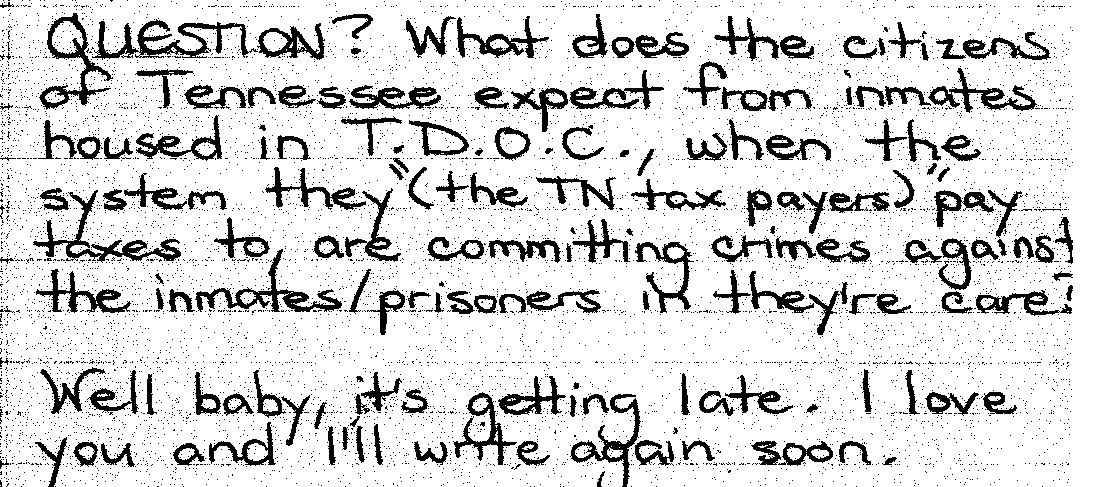 QUESTION? What does the citizens
of Tennessee expect from inmates
housed in T.D.O.C., when the
system they "(the TN tax payers)" pay
taxes to, are committing crimes against
the inmates/prisoners in they're care?
Well baby, it's getting late. I love
you and I'll write again soon.